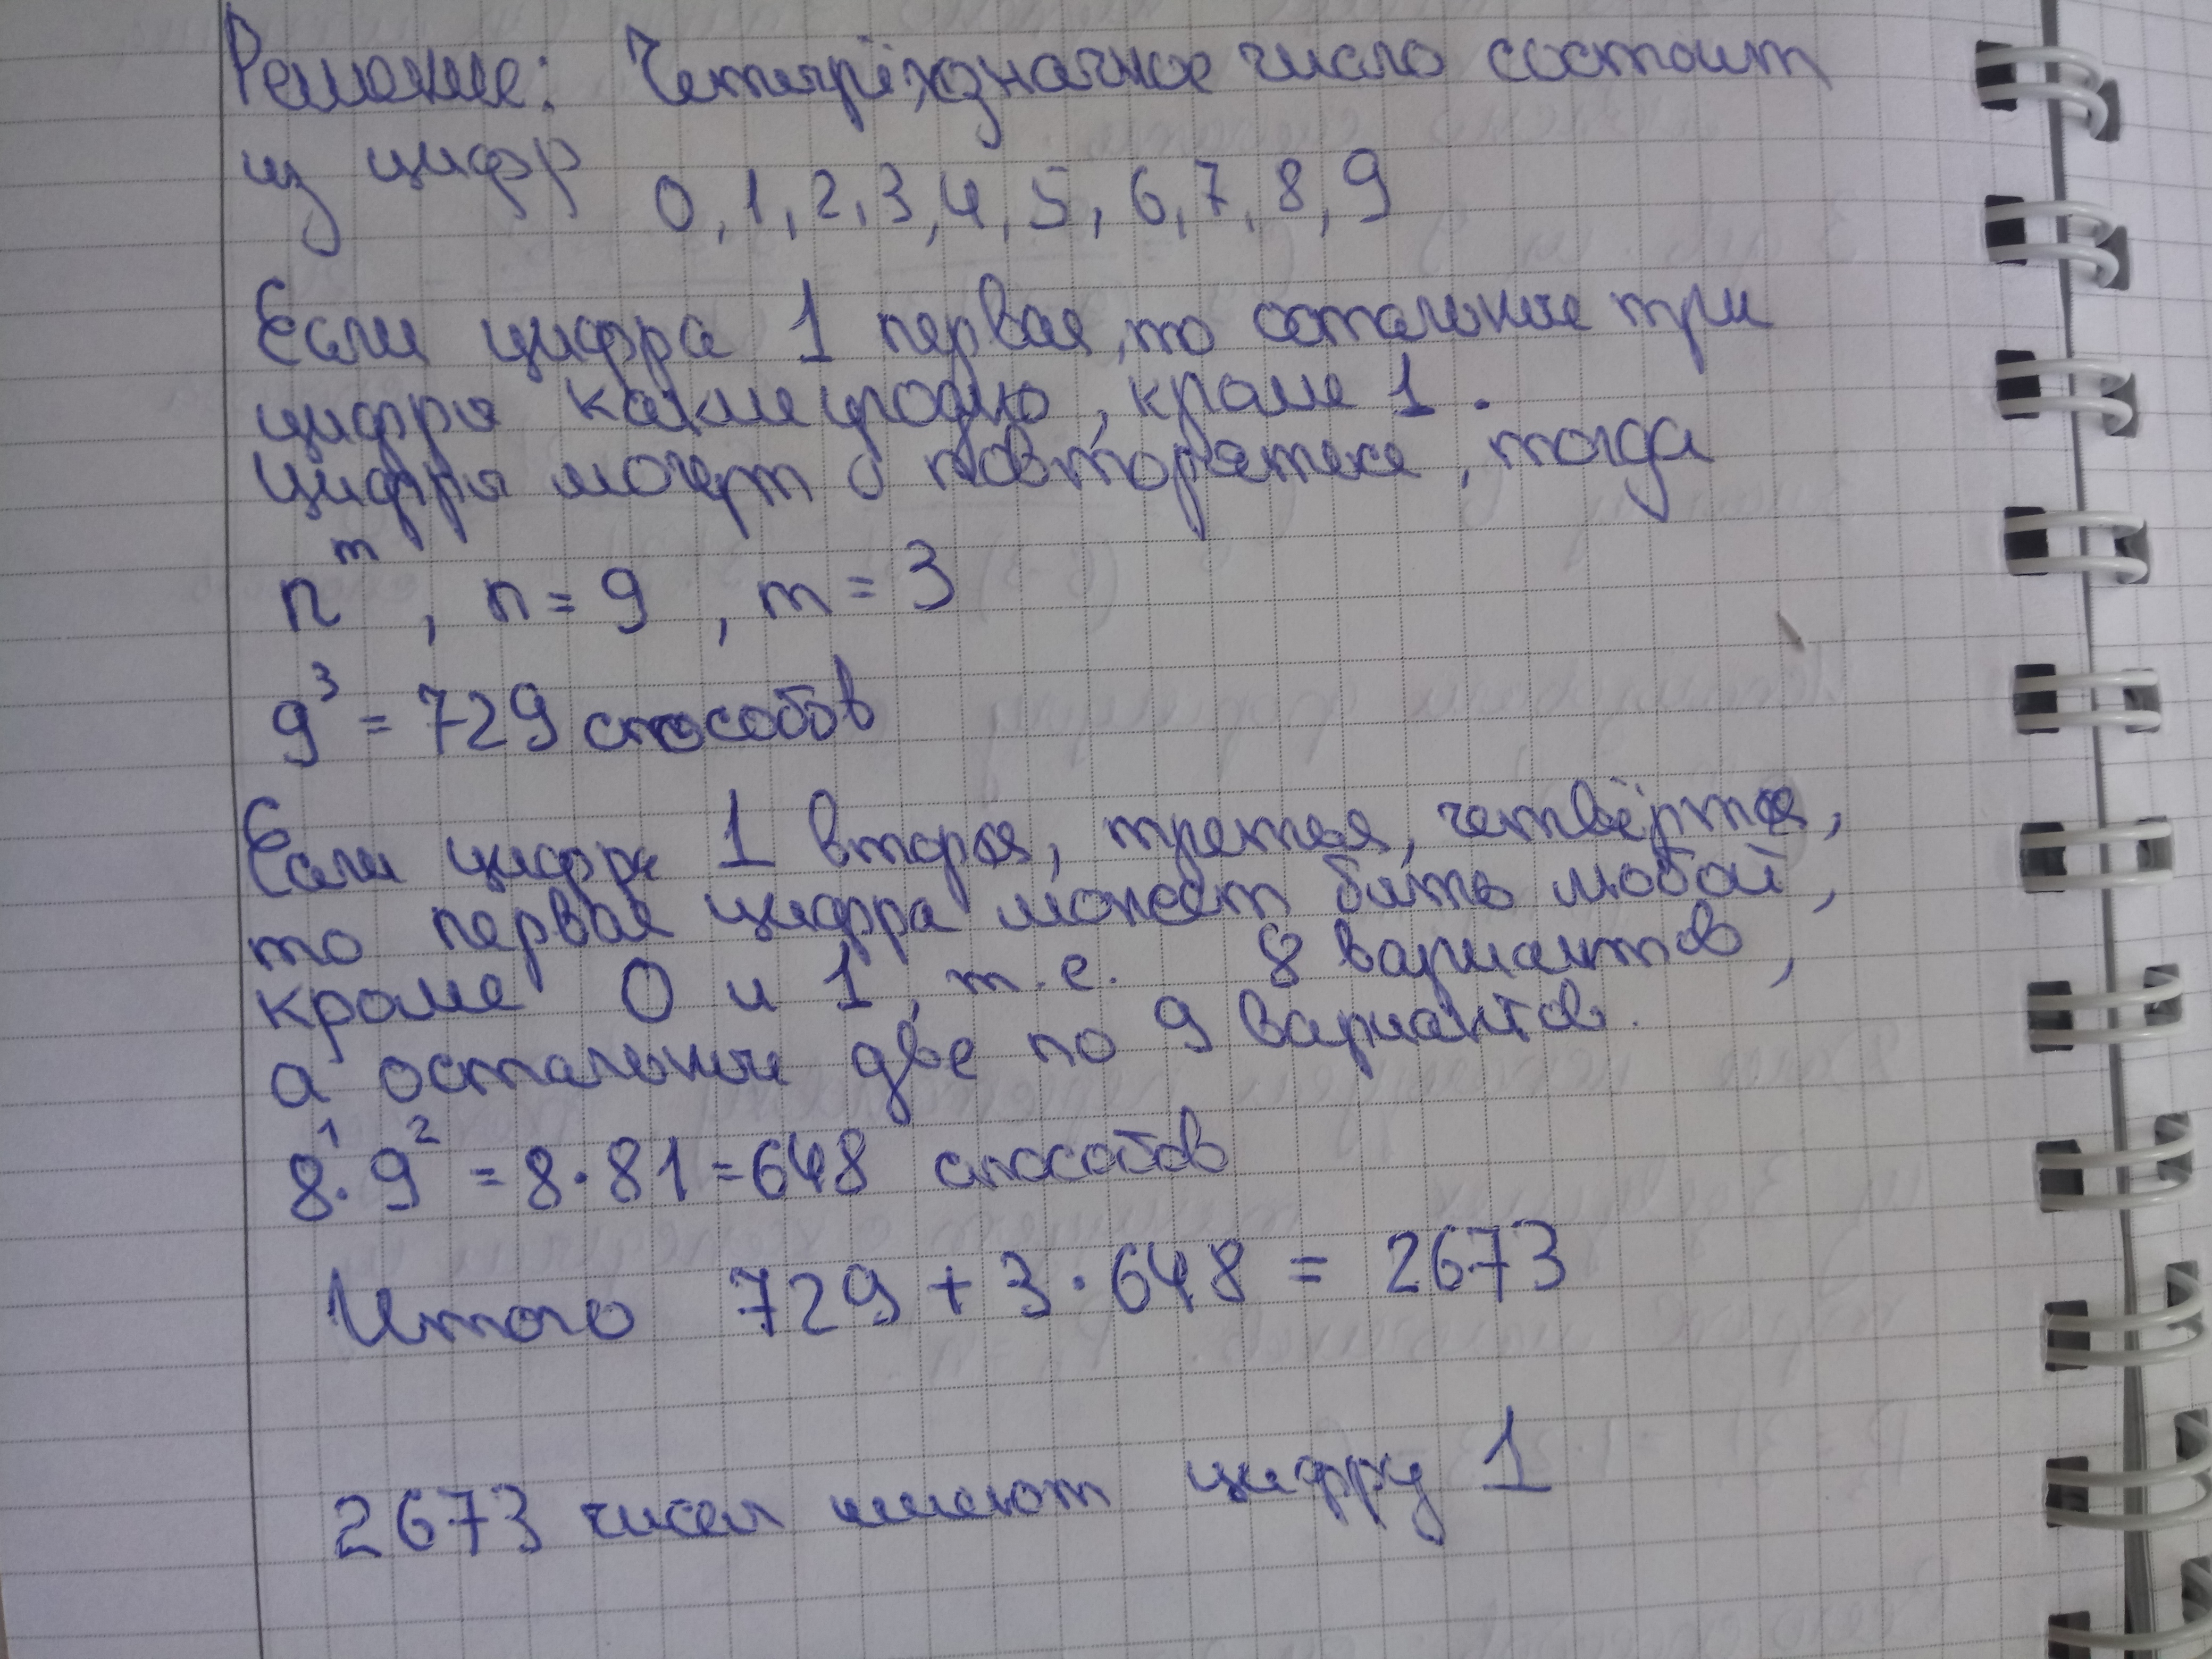 Решение: Четырёхзначное число состоит
из цифр 0, 1, 2, 3, 4, 5, 6, 7, 8, 9
Если цифра 1 первая, то остальные три
цифры какие угодно, кроме 1.
Цифры могут повторяться, тогда
n^m, n = 9, m = 3
9³ = 729 способов
Если цифра 1 вторая, третья, четвёртая,
то первая цифра может быть любой,
кроме 0 и 1, т.е. 8 вариантов,
а остальные две по 9 вариантов.
8¹·9² = 8·81 = 648 способов
Итого 729 + 3·648 = 2673
2673 чисел имеют цифру 1